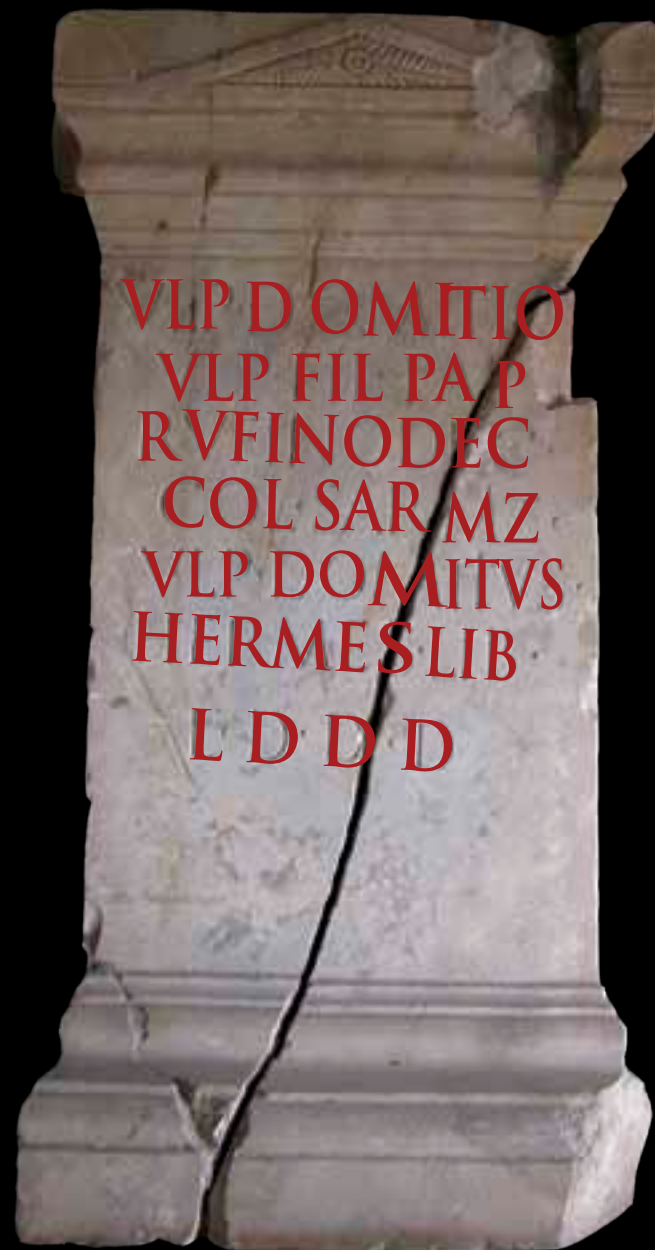 VLP D OMITIO
VLP FIL PA P
RVFINODEC
COL SAR MZ
VLP DOMITVS
HERMES LIB
L D D D